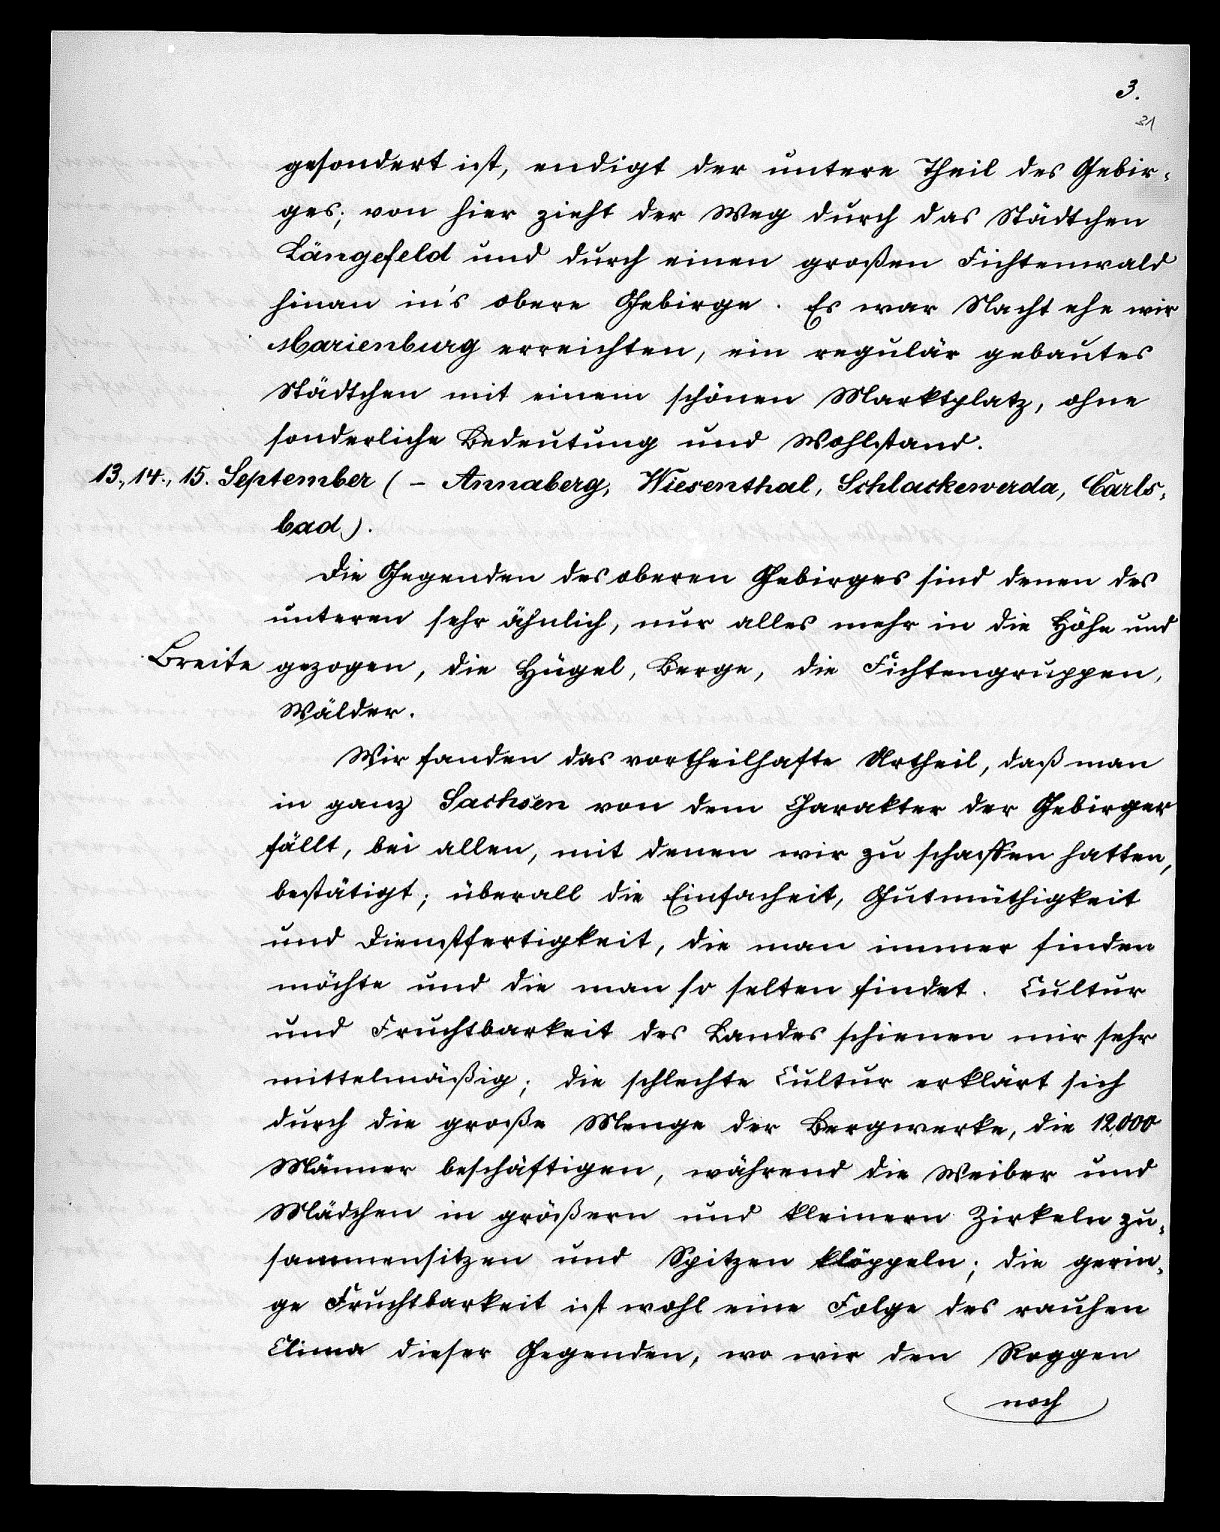 3.
31
gesondert ist, endigt der untere Theil des Gebir-
ges; von hier zieht der Weg durch das Städtchen
Längefeld und durch einen großen Fichtenwald
hinan in's obere Gebirge. Es war Nacht ehe wir
Marienburg erreichten, ein regulär gebautes
Städtchen mit einem schönen Marktplatz, ohne
sonderliche Bedeutung und Wohlstand.
13., 14., 15. September (– Annaberg, Wiesenthal, Schlackewerda, Carls-
bad).
Die Gegenden des oberen Gebirges sind denen des
unteren sehr ähnlich, nur alles mehr in die Höhe und
Breite gezogen, die Hügel, Berge, die Fichtengruppen,
Wälder.
Wir fanden das vortheilhafte Urtheil, daß man
in ganz Sachsen von dem Charakter der Gebirger
fällt, bei allen, mit denen wir zu schaffen hatten,
bestätigt; überall die Einfacheit, Gutmüthigkeit
und Dienstfertigkeit, die man immer finden
möchte und die man so selten findet. Cultur
und Fruchtbarkeit des Landes schienen mir sehr
mittelmäßig; die schlechte Cultur erklärt sich
durch die große Menge der Bergwerke, die 12,000
Männer beschäftigen, während die Weiber und
Mädchen in größern und kleinern Zirkeln zu-
sammensitzen und Spitzen klöppeln; die gerin-
ge Fruchtbarkeit ist wohl eine Folge des rauhen
Clima dieser Gegenden, wo wir den Roggen
noch